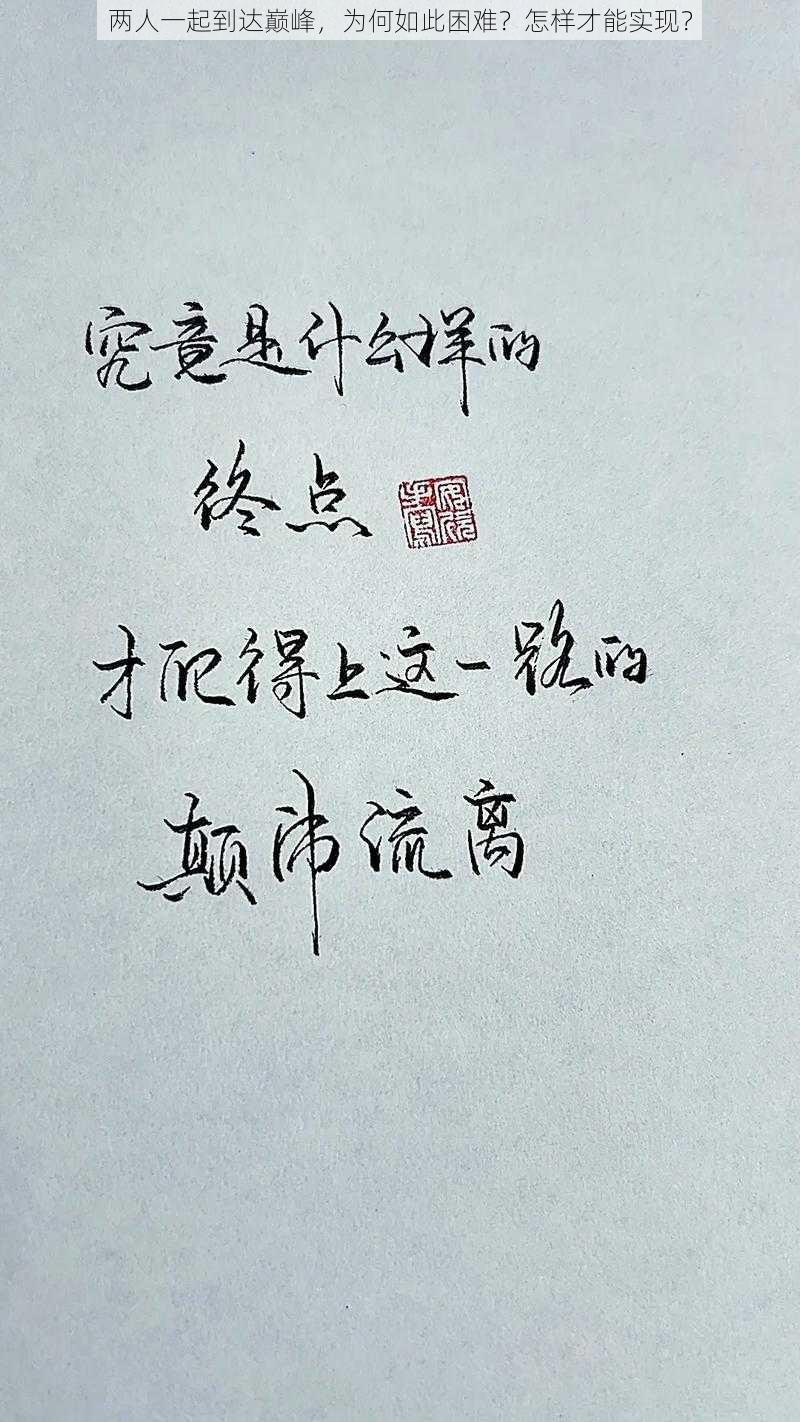 两人一起到达巅峰，为何如此困难？怎样才能实现？
究竟是什么样的
终点
才配得上这一路的
颠沛流离